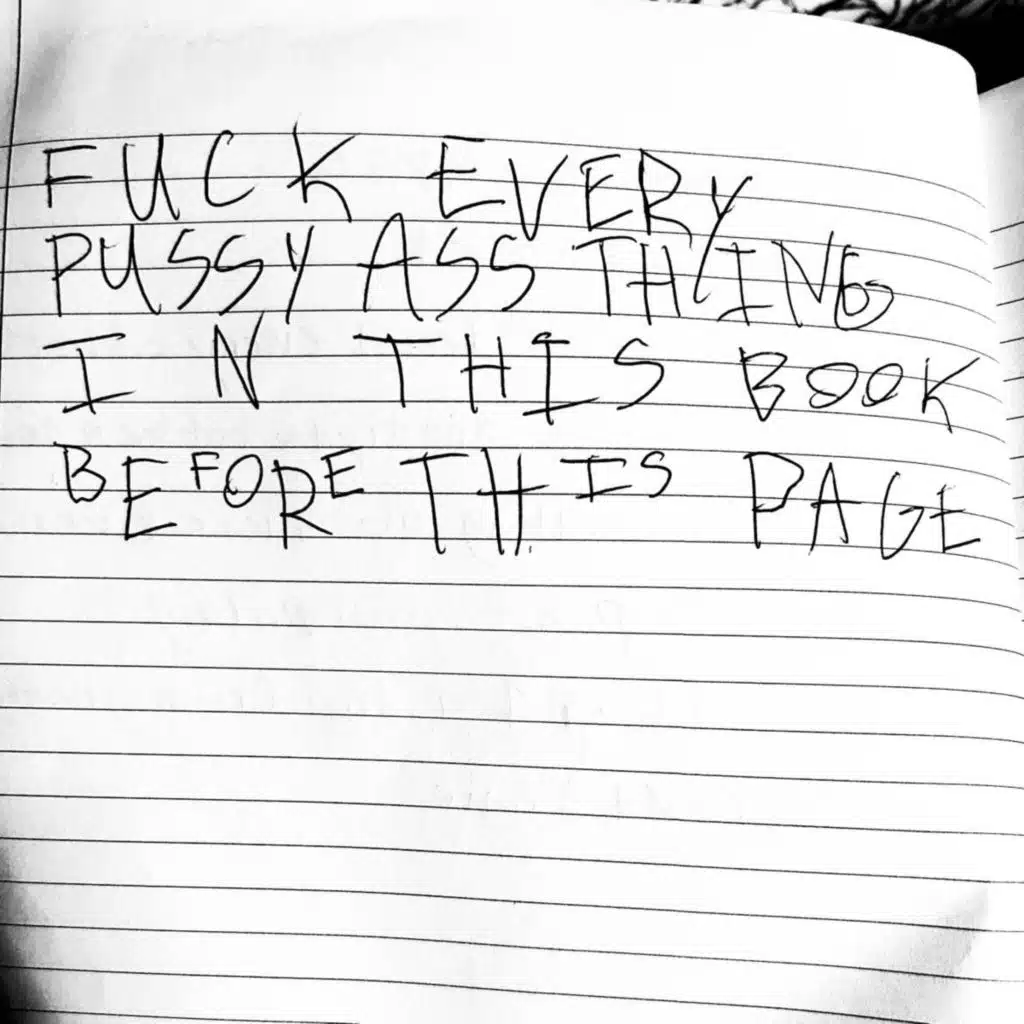 FUCK EVERY
PUSSY ASS THING
IN THIS BOOK
BEFORE THIS PAGE